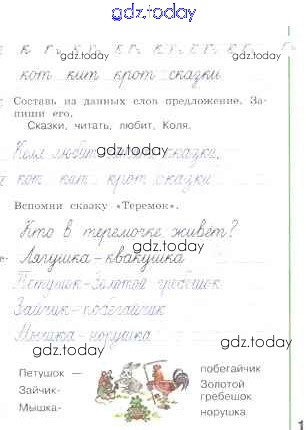 gdz.today
кот кит крот сказки
Составь из данных слов предложение. За-
пиши его.
Сказки, читать, любит, Коля.
Коля любит сказки.
gdz.today
кот кит крот сказки
Вспомни сказку «Теремок».
Кто в теремочке живёт?
gdz.today
Лягушка-квакушка
Петушок-Золотой гребешок
Зайчик-побегайчик
gdz.today
Мышка-норушка
gdz.today
Петушок —
Зайчик-
Мышка-
побегайчик
Золотой
гребешок
норушка
gdz.today
1